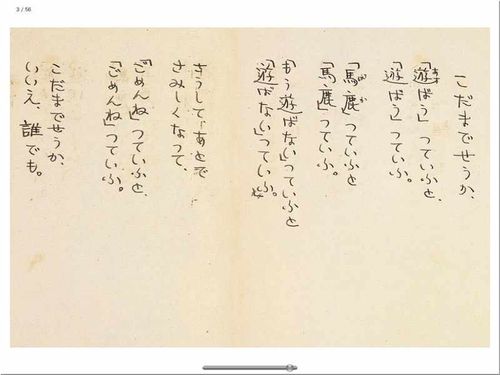 3 / 56
こだまでせうか、
「遊ばう」つていふと、
「遊ばう」つていふ。
「馬鹿」つていふと
「馬鹿」つていふ。
「もう遊ばない」つていふと
「遊ばない」つていふ。
さうして、あとで
さみしくなつて、
「ごめんね」つていふと、
「ごめんね」つていふ。
こだまでせうか、
いいえ、誰でも。